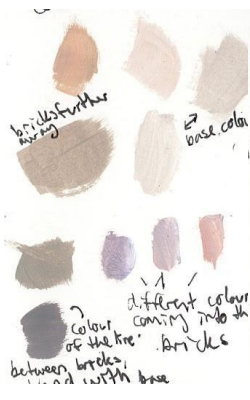 bricks further
away
base colou
different colour
coming into th
bricks
colour
of the
between bricks,
with base